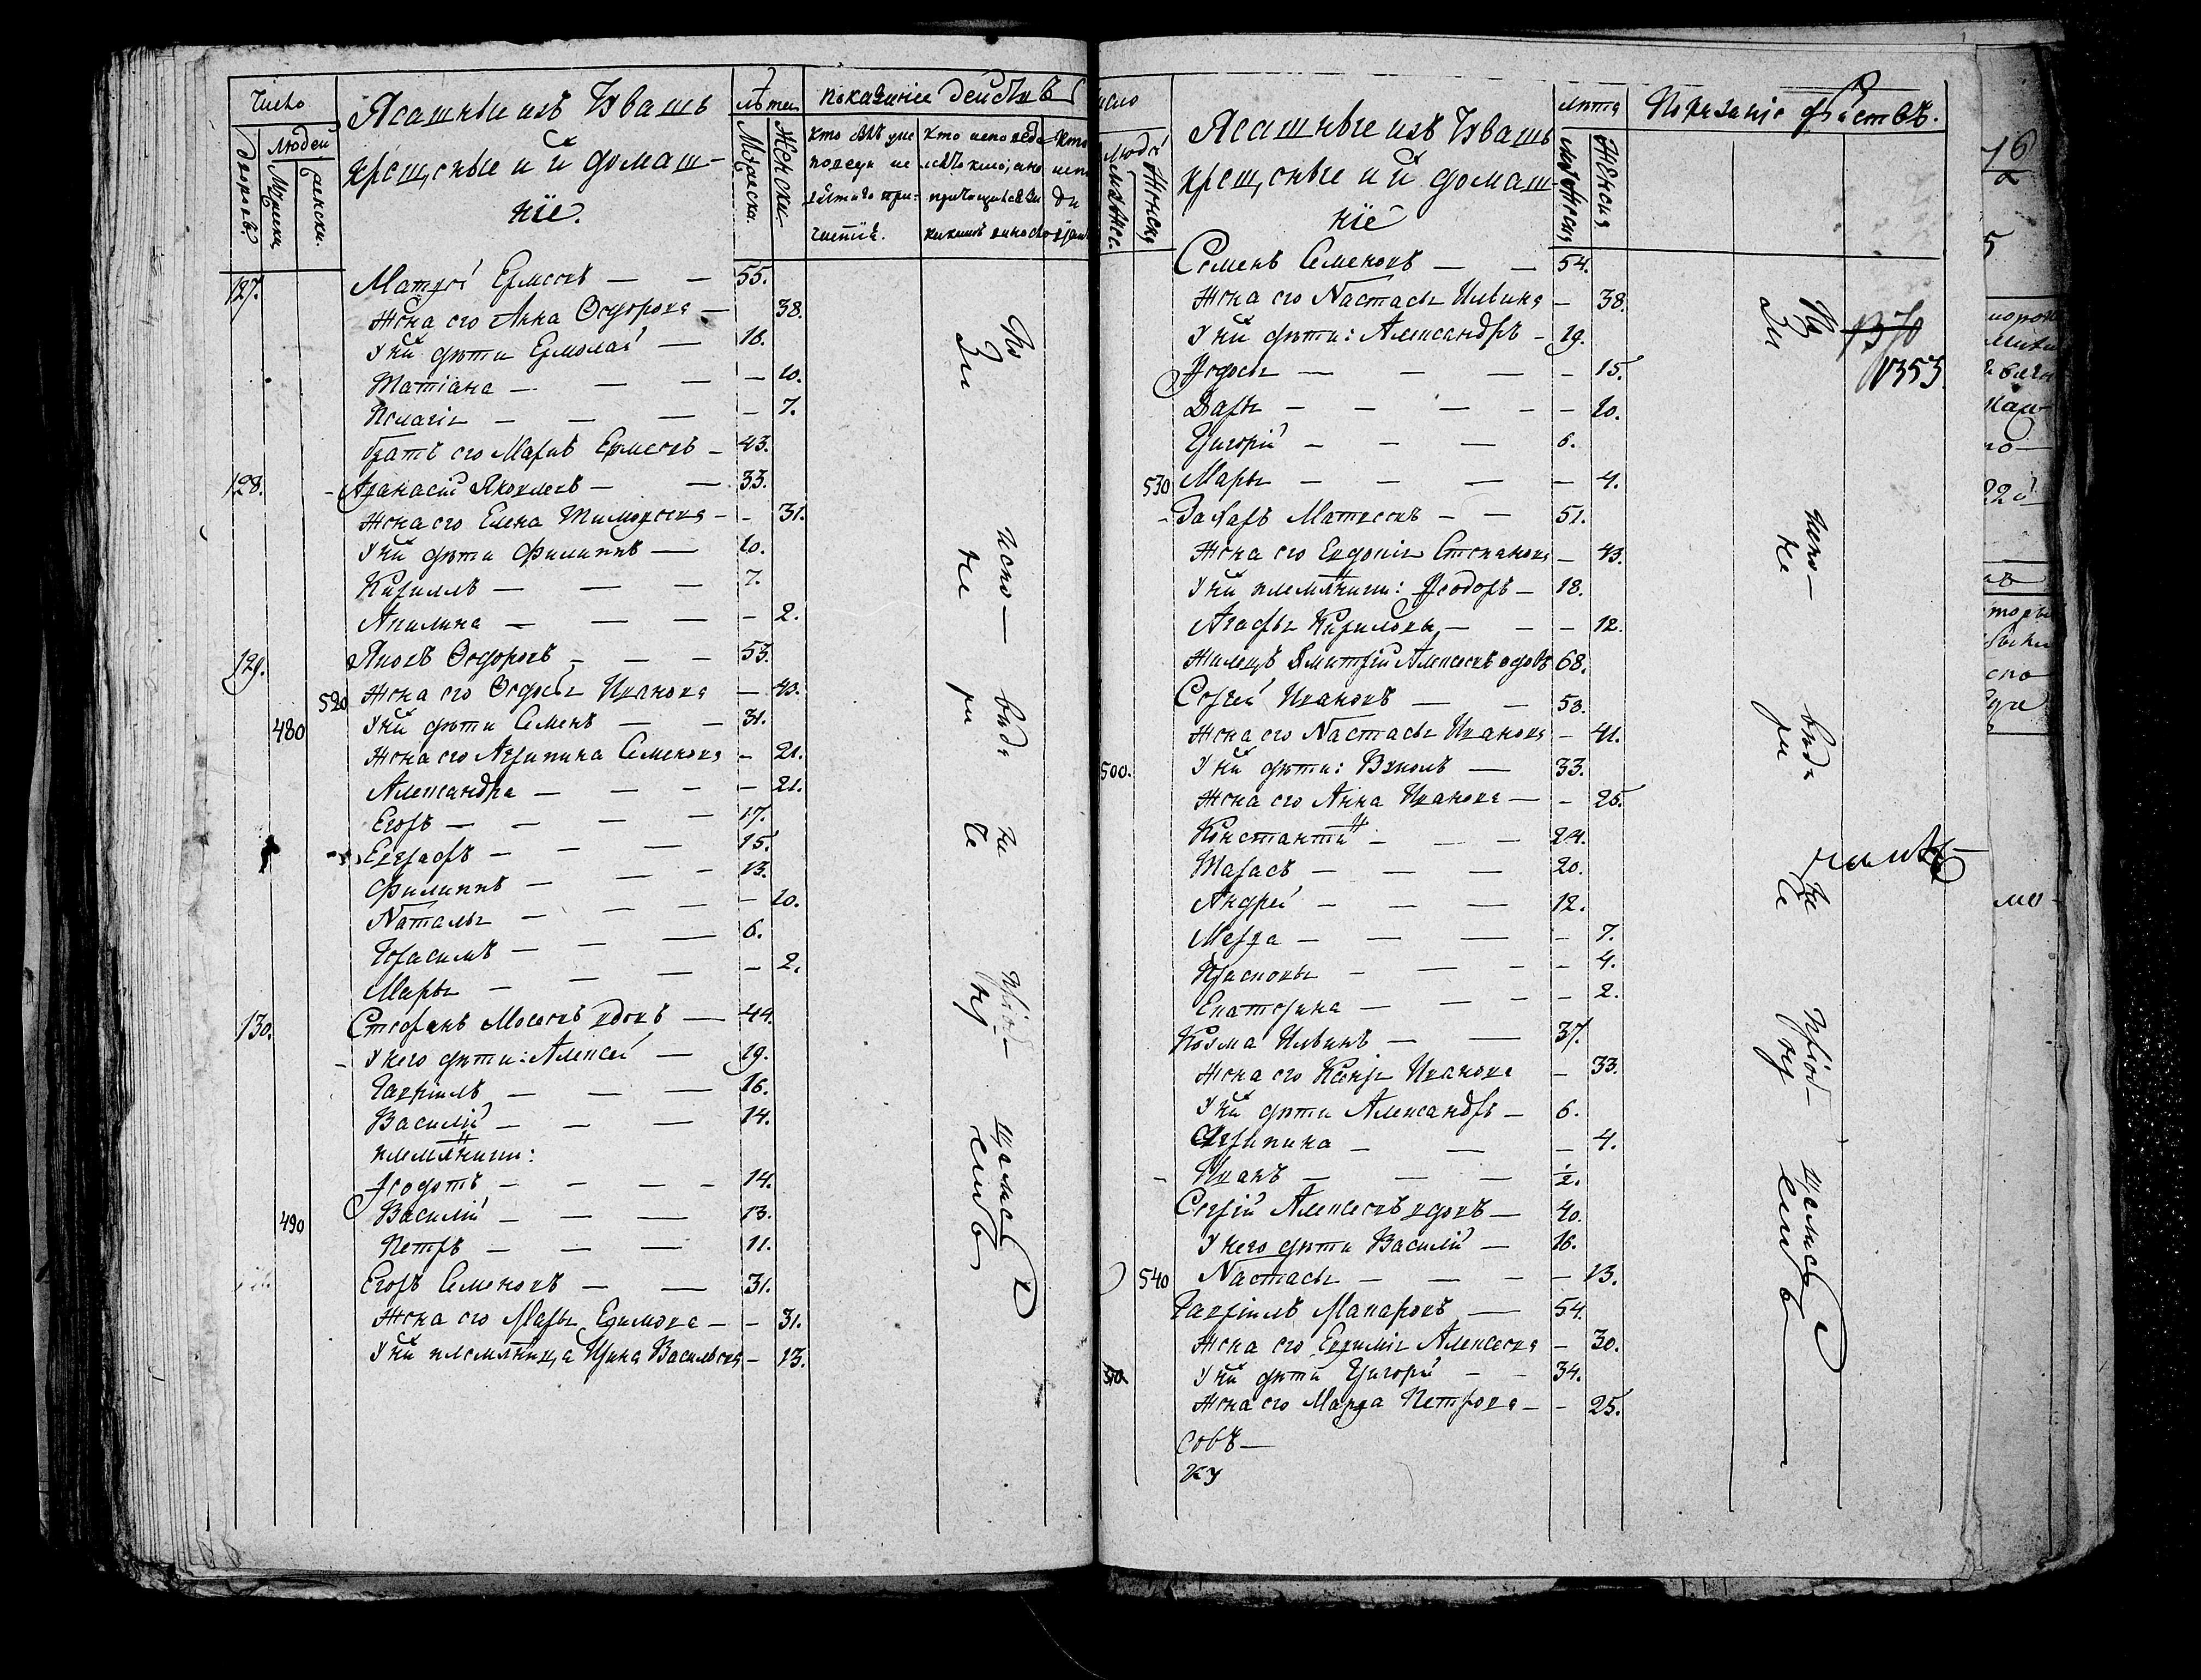 Число
дворовъ.
Людей
Мужеска.
женска.
Ясашные изъ Чувашъ
крещеные и ихъ домаш-
нїе.
лѣта
Мужеска.
Женска.
показаніе действъ
кто былъ у ис
поведи и
святаго при-
частія.
кто исповеда
лсѧ токмо, а не
причащался и за
какимъ виносло
кто
испо
ди
127.
Матѳей Ермеевъ — — 55.
Жена его Анна Ѳедорова — 38.
У нихъ дѣти Ермолай — 16.
Татіана — — — 10.
Пелагія — — — 7.
братъ его Маркъ Ермеевъ — 43.
128.
Афанасій Яковлевъ — — 33.
Жена его Елена Тимофеева — 31.
У нихъ дѣти Филиппъ — 10.
Кириллъ — — — 7.
Акилина — — — 2.
129.
Яковъ Ѳедоровъ — — — 53.
520 Жена его Ѳедосья Иванова — 43.
480 У нихъ дѣти Семенъ — — 31.
Жена его Агрипина Семенова — 21.
Александра — — — 21.
Егоръ — — — — 17.
Евграфъ — — — 15.
Филиппъ — — — 13.
Наталья — — — 10.
Герасимъ — — — 6.
Марья — — — 2.
130.
Стефанъ Мосеевъ вдовъ — 44.
У него дѣти: Алексей — 19.
Гавріилъ — — — 16.
Василій — — — 14.
племянники:
Федотъ — — — — 14.
490 Василій — — — 13.
Петръ — — — 11.
Егоръ Семеновъ — — 31.
Жена его Марья Ефимова — 31.
У нихъ племянница Ирина Васильева — 13.
По испо— веда ни Прiоб— щались
За не ра че ніемъ
число
людей
мужес.
Женска
Ясашные изъ Чувашъ
крещеные и ихъ домаш-
нїе
лѣта
мужеска
Женска
Показаніе дѣйствъ.
Семенъ Семеновъ — — 54.
Жена его Настасья Ильина — 38.
У нихъ дѣти: Александръ — 19.
Федосья — — — — 15.
Дарья — — — — 10.
Григорій — — — 6.
530 Марья — — — — 4.
Захаръ Матвеевъ — — 51.
Жена его Евдокія Степанова — 43.
У нихъ племянники: Феодоръ — 18.
Агафья Кирилова — — 12.
Жилецъ Дмитрій Алексеевъ вдовъ 68.
Сергей Ивановъ — — 53.
Жена его Настасья Иванова — 41.
500. У нихъ дѣти: Вуколъ — 33.
Жена его Анна Иванова — — 25.
Константинъ — — — 24.
Тарасъ — — — 20.
Андрей — — — 12.
Марфа — — — — 7.
Прасковья — — — 4.
Екатерина — — — 2.
Козма Ильинъ — — 37.
Жена его Ксенья Иванова — 33.
У нихъ дѣти Александръ — 6.
Агрипина — — — 4.
Иванъ — — — ½.
Сергій Алексеевъ вдовъ — 40.
У него дѣти Василій — 16.
540 Настасья — — — 13.
Гавріилъ Макаровъ — 54.
Жена его Евфимія Алексеева — 30.
510. У нихъ дѣти Григорій — — 34.
Жена его Марфа Петрова — 25.
1370
1353